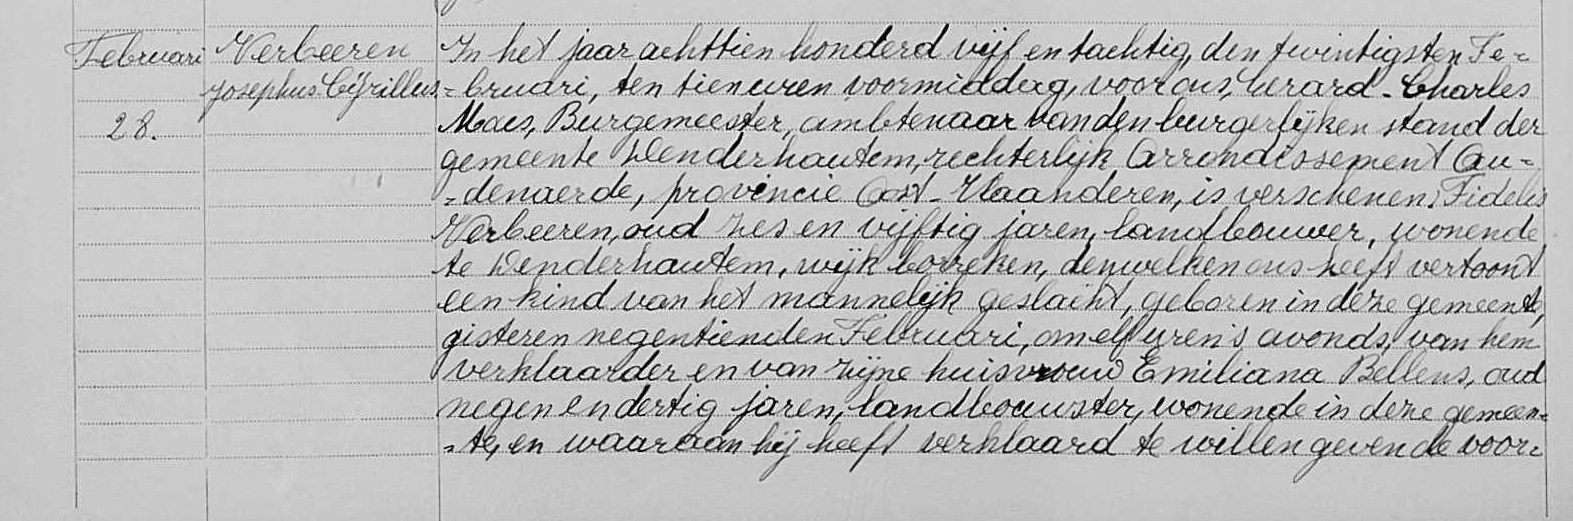 Februari Verbeeren In het jaar achttien honderd vijf en tachtig, den twintigsten Fe-
Josephus Cÿrillus -bruari, ten tien uren voormiddag, voor ons, Gerard-Charles
28. Maes, Burgemeester, ambtenaar van den burgerlijken stand der
gemeente Denderhautem, rechterlijk Arrondissement Au-
-denaerde, provincie Oost-Vlaanderen, is verschenen: Fidelis
Verbeeren, oud zes en vijftig jaren, landbouwer, wonende
te Denderhautem, wijk borreken, denwelken ons heeft vertoont
een kind van het mannelijk geslacht, geboren in deze gemeente,
gisteren negentienden Februari, om elf uren 's avonds, van hem
verklaarder en van zijne huisvrouw Emiliana Bellens, oud
negen en dertig jaren, landbouwster, wonende in deze gemeen-
-te, en waaraan hij heeft verklaard te willen geven de voor-